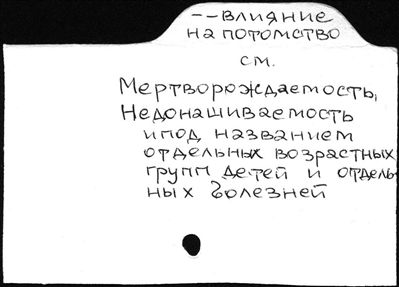 --влияние
на потомство
см.
Мертворождаемость,
Недонашиваемость
и под названием
отдельных возрастных
групп детей и отдель-
ных болезней